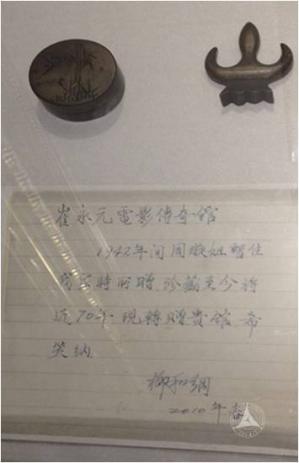 崔永元電影傳奇館
1942年间周璇姐暫住
時所贈,珍藏至今将
近70年.现轉贈贵馆希
笑纳.
柳和纲
2010年春